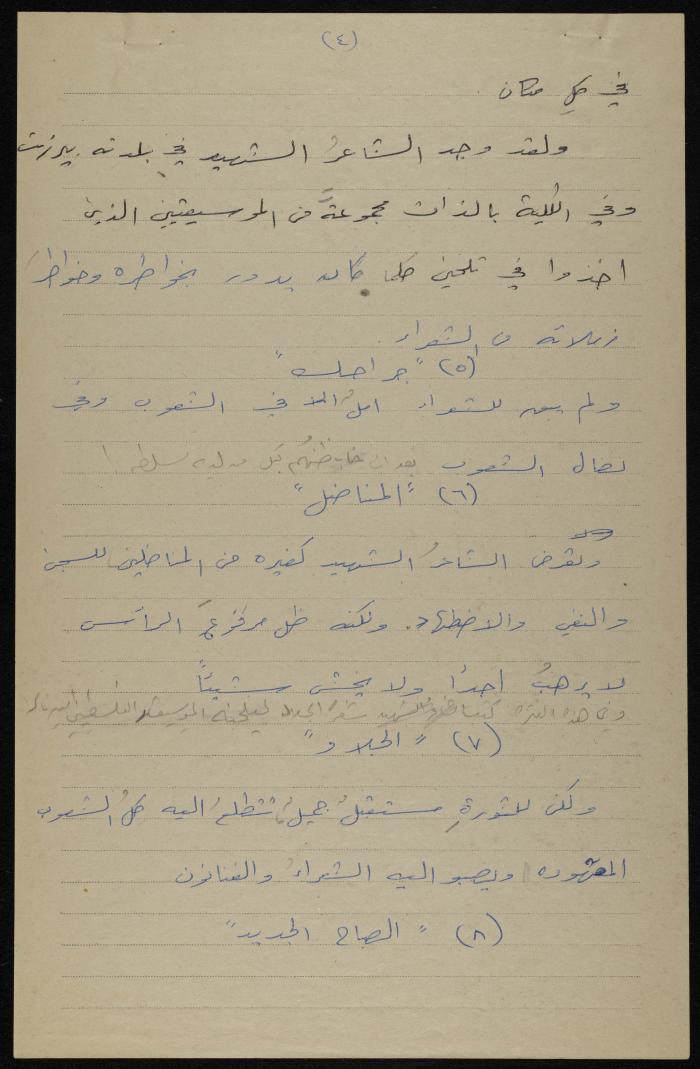 (٤)
في كل مكان.
ولقد وجد الشاعرُ الشهيد في بلدته بيرزيت
وفي الكلية بالذات مجموعةً من الموسيقيين الذين
اخذوا في تلحين كلما كان يدور بخواطره وخواطر
زملائه من الشعراء.
(٥) "جراحك"
ولم يبق للشعراء املٌ الا في الشعوب وفي
نضال الشعوب بعد ان بكل سلطه!
(٦) "المناضل"
وتعرض الشاعرُ الشهيد كغيره من المناضلين للسجن
والنفي والاضطهاد. ولكنه ظل مرفوعَ الرأس
لا يرهبُ احداً ولا يخشى شيئاً
وفي هذه الفتره كتب الشهيد الموسيقار الفلسطيني
(٧) "الجلاد"
ولكن للثورةِ مستقبلٌ جميلٌ تتطلع اليه كلُ الشعوب
المقهوره ويصبو اليه الشعراءُ والفنانون
(٨) "الصباح الجديد"